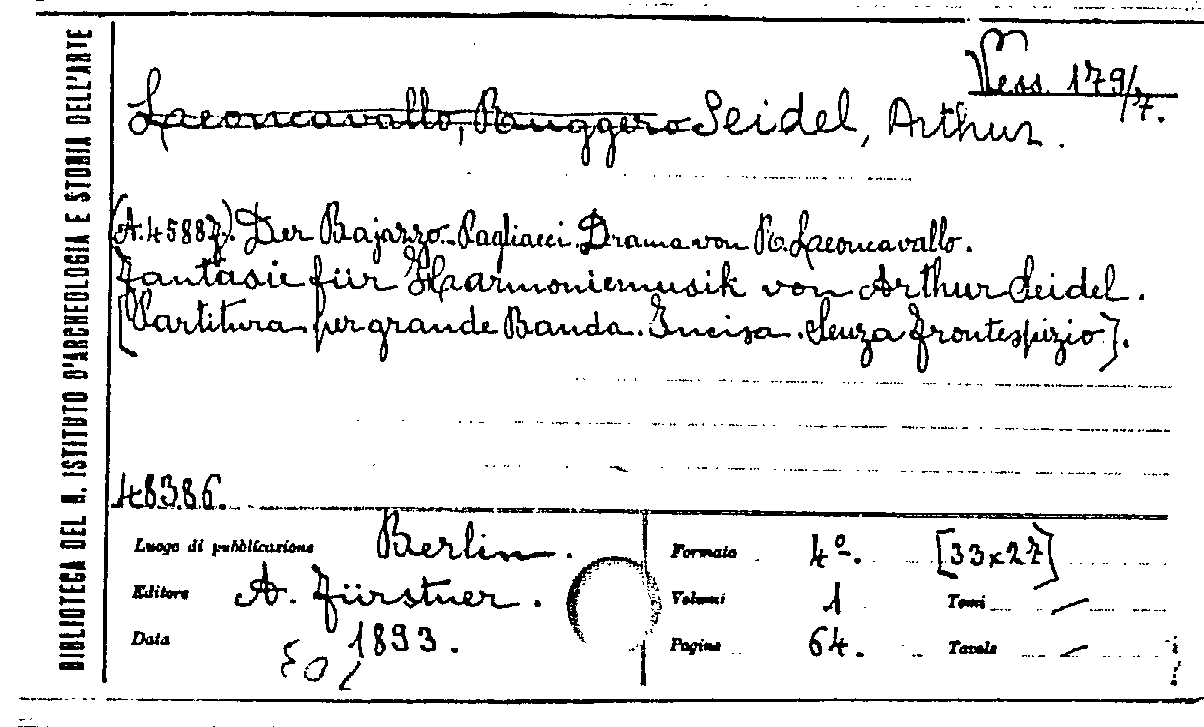 BIBLIOTECA DEL R. ISTITUTO D'ARCHEOLOGIA E STORIA DELL'ARTE
Vess. 179/7.
Laconcavallo, Ruggero Seidel, Arthur.
(A.4588f). Der Bajazzo-Pagliacci. Drama von R. Laeoncavallo.
Fantasie für Harmoniemusik von Arthur Seidel.
[Partitura per grande Banda. Incisa. Senza frontespizio].
48386.
Luogo di pubblicazione Berlin.
Editore A. Fürstner.
Data 1893.
Formato 4º. [33x27]
Volumi 1 Tomi /
Pagine 64. Tavole /